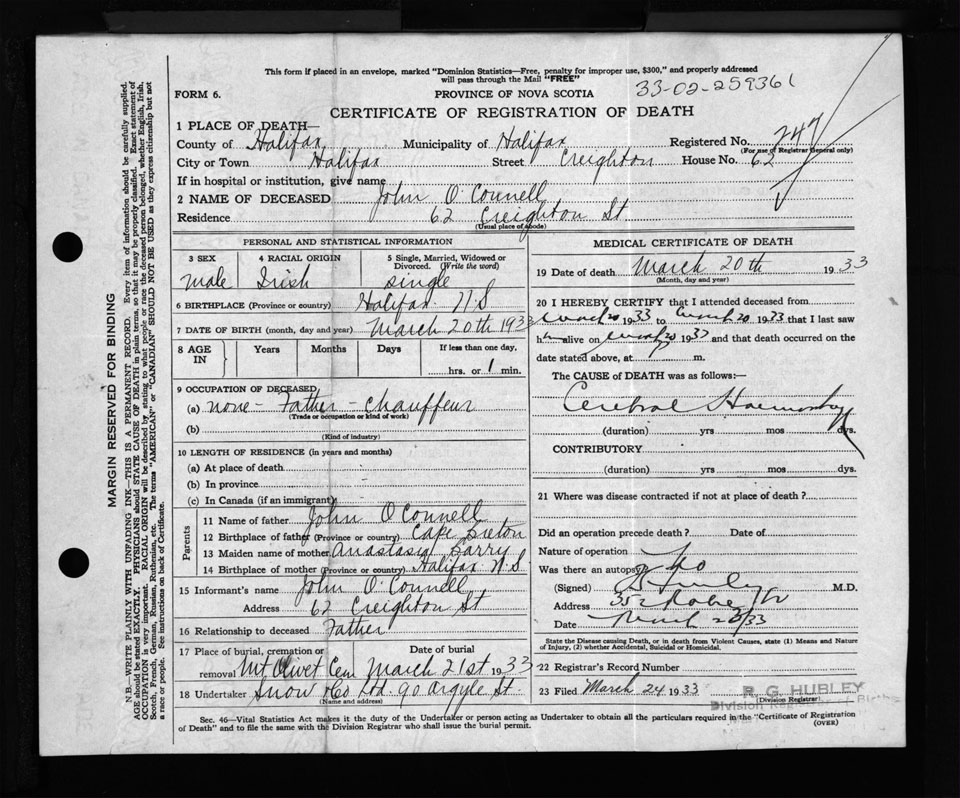 This form if placed in an envelope, marked "Dominion Statistics—Free, penalty for improper use, $300," and properly addressed
will pass through the Mail "FREE"
FORM 6.
PROVINCE OF NOVA SCOTIA
33-02-259361
CERTIFICATE OF REGISTRATION OF DEATH
1 PLACE OF DEATH—
County of Halifax Municipality of Halifax Registered No. 247
(For use of Registrar General only)
City or Town Halifax Street Creighton House No. 62
If in hospital or institution, give name
2 NAME OF DECEASED John O'Connell
Residence 62 Creighton St
(Usual place of abode)
PERSONAL AND STATISTICAL INFORMATION
3 SEX 4 RACIAL ORIGIN 5 Single, Married, Widowed or
Divorced. (Write the word)
male Irish single
6 BIRTHPLACE (Province or country) Halifax N.S
7 DATE OF BIRTH (month, day and year) March 20th 1933
8 AGE IN Years Months Days If less than one day,
hrs. or 1 min.
9 OCCUPATION OF DECEASED
(a) none - Father - chauffeur
(Trade or occupation or kind of work)
(b)
(Kind of industry)
10 LENGTH OF RESIDENCE (in years and months)
(a) At place of death
(b) In province
(c) In Canada (if an immigrant)
Parents
11 Name of father John O'Connell
12 Birthplace of father (Province or country) Cape Breton
13 Maiden name of mother Anastasia Barry
14 Birthplace of mother (Province or country) Halifax N.S
15 Informant's name John O'Connell
Address 62 Creighton St
16 Relationship to deceased Father
17 Place of burial, cremation or Date of burial
removal Mt Olivet Cem March 21st 1933
18 Undertaker Snow & Co Ltd. 90 Argyle St.
(Name and address)
MEDICAL CERTIFICATE OF DEATH
19 Date of death March 20th 1933
(Month, day and year)
20 I HEREBY CERTIFY that I attended deceased from
March 20 1933 to March 20 1933 that I last saw
h alive on March 20 1933 and that death occurred on the
date stated above, at m.
The CAUSE of DEATH was as follows:—
Cerebral Haemorrhage
(duration) yrs mos dys.
CONTRIBUTORY
(duration) yrs mos dys.
21 Where was disease contracted if not at place of death?
Did an operation precede death? Date of
Nature of operation
Was there an autopsy? No
(Signed) M.D.
Address
Date March 33
State the Disease causing Death, or in death from Violent Causes, state (1) Means and Nature
of Injury, (2) whether Accidental, Suicidal or Homicidal.
22 Registrar's Record Number
23 Filed March 24 1933 R. G. HUBLEY
(Division Registrar)
Division Registrar Births
Sec. 46—Vital Statistics Act makes it the duty of the Undertaker or person acting as Undertaker to obtain all the particulars required in the "Certificate of Registration
of Death" and to file the same with the Division Registrar who shall issue the burial permit.
(OVER)
MARGIN RESERVED FOR BINDING
N.B.—WRITE PLAINLY WITH UNFADING INK—THIS IS A PERMANENT RECORD. Every item of information should be carefully supplied.
AGE should be stated EXACTLY. PHYSICIANS should STATE CAUSE OF DEATH in plain terms, so that it may be properly classified. Exact statement of
OCCUPATION is very important. RACIAL ORIGIN will be described by stating to what people or race the deceased person belonged, whether English, Irish,
Scotch, French, German, Russian, Ruthenian, etc. The terms "AMERICAN" or "CANADIAN" SHOULD NOT BE USED as they express citizenship but not
a race or people. See instructions on back of Certificate.